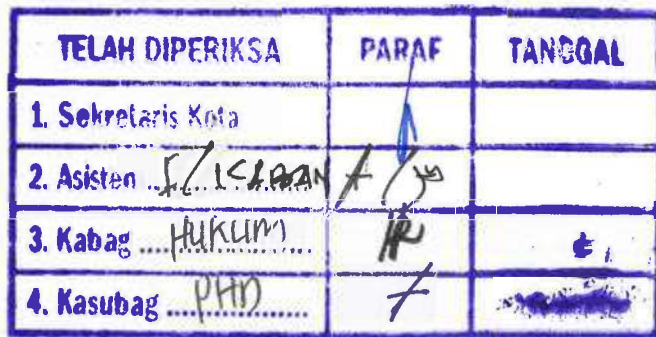 TELAH DIPERIKSA PARAF TANGGAL
1. Sekretaris Kota
2. Asisten ... I /
3. Kabag .... HUKUM ........
4. Kasubag ..... PHD .......